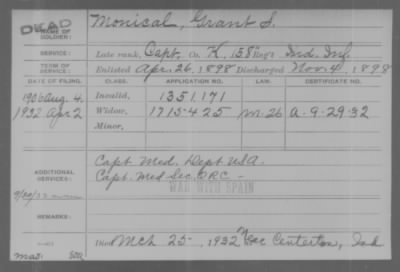 DEAD
NAME OF SOLDIER: Monical, Grant S.
SERVICE: Late rank, Capt. Co. K, 158" Reg't Ind. Inf.
TERM OF SERVICE: Enlisted Apr. 26, 1898 Discharged Nov. 4, 1898
DATE OF FILING. CLASS. APPLICATION NO. LAW. CERTIFICATE NO.
1906 Aug. 4. Invalid, 1351.171
1932 Apr 2 Widow, 1715425 m-26 A-9-29-32
Minor,
ADDITIONAL SERVICES: Capt Med. Dept USA.
Capt. Med Sec. ORC -
WAR WITH SPAIN
REMARKS:
Died Mch 25-, 1932, Centerton, Ind